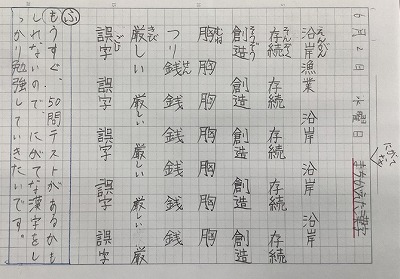 6月2日 水曜日
まちがえた漢字
沿岸漁業 沿岸 沿岸 沿岸
えんがん
存続 存続 存続 存続
そんぞく
創造 創造 創造 創造
そうぞう
胸 胸 胸 胸 胸 胸
むね
つり銭 銭 銭 銭 銭
せん
厳しい 厳しい 厳しい 厳しい 厳
きび
誤字 誤字 誤字 誤字 誤字
ごじ
ふ
もうすぐ、50問テストがあるかも
しれないので にがてな漢字をし
っかり勉強していきたいです。